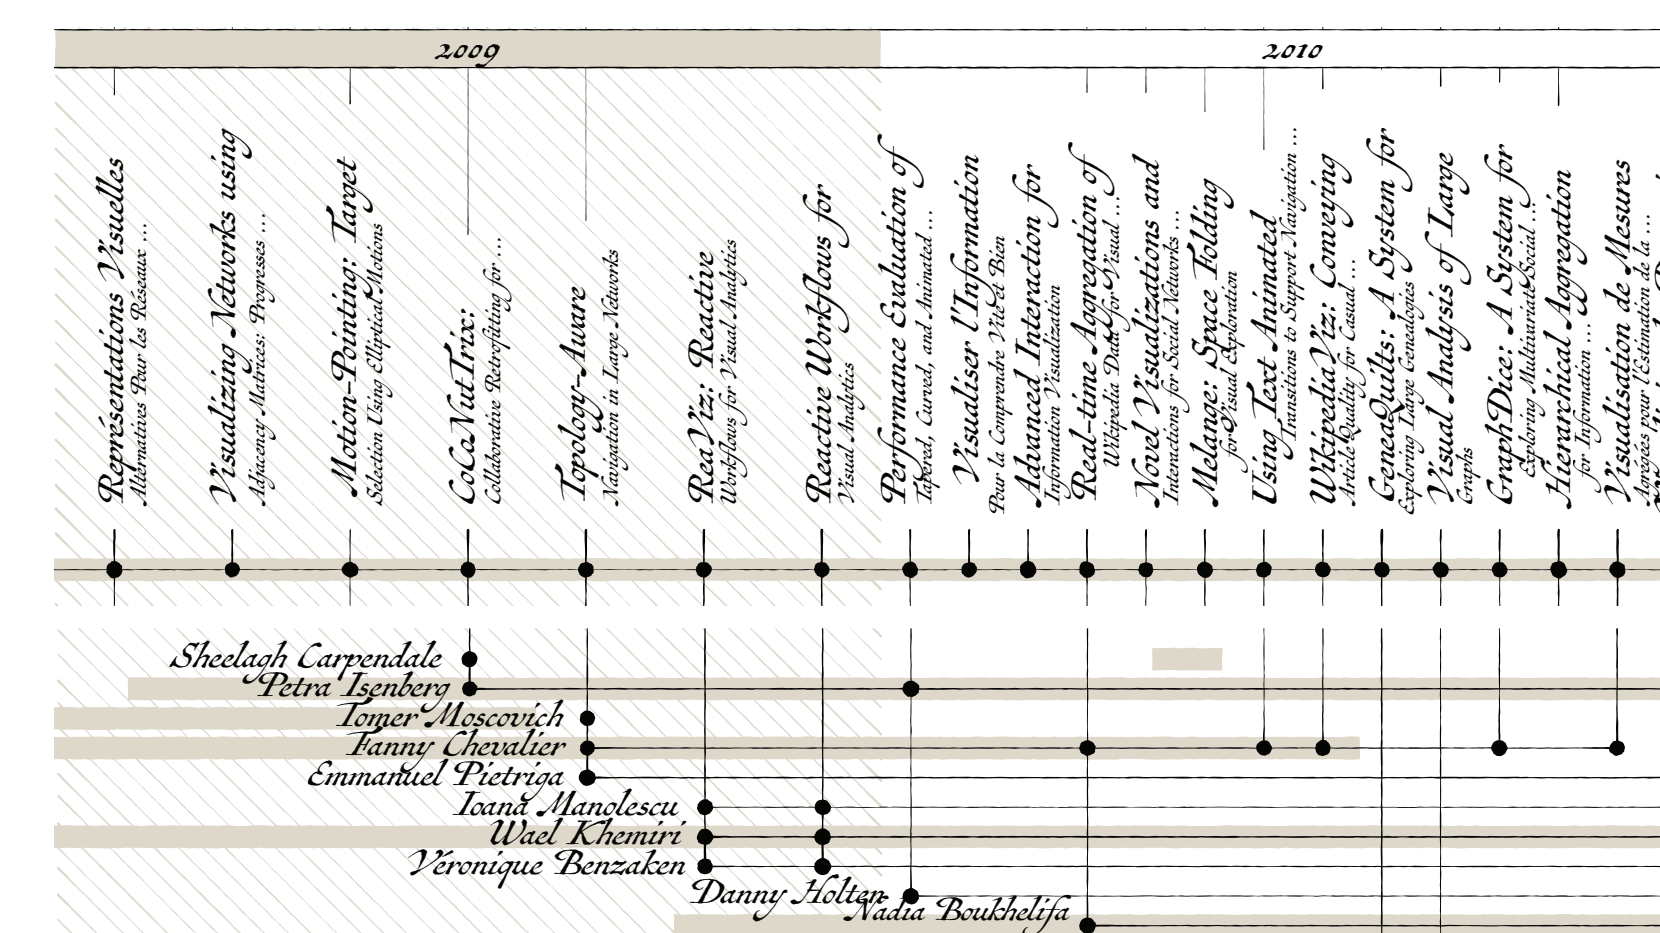 2009
2010
Représentations Visuelles
Alternatives Pour les Réseaux ...
Visualizing Networks using
Adjacency Matrices: Progresses ...
Motion-Pointing: Target
Selection Using Elliptical Motions
CoCoNutTrix:
Collaborative Retrofitting for ...
Topology-Aware
Navigation in Large Networks
ReaViz: Reactive
Workflows for Visual Analytics
Reactive Workflows for
Visual Analytics
Performance Evaluation of
Tapered, Curved, and Animated ...
Visualiser l'Information
Pour la Comprendre Vite et Bien
Advanced Interaction for
Information Visualization
Real-time Aggregation of
Wikipedia Data for Visual ...
Novel Visualizations and
Interactions for Social Networks ...
Melange: Space Folding
for Visual Exploration
Using Text Animated
Transitions to Support Navigation ...
WikipediaViz: Conveying
Article Quality for Casual ...
GeneaQuilts: A System for
Exploring Large Genealogies
Visual Analysis of Large
Graphs
GraphDice: A System for
Exploring Multivariate Social ...
Hierarchical Aggregation
for Information ...
Visualisation de Mesures
Agrégées pour l'Estimation de la ...
Sheelagh Carpendale
Petra Isenberg
Tomer Moscovich
Fanny Chevalier
Emmanuel Pietriga
Ioana Manolescu
Wael Khemiri
Véronique Benzaken
Danny Holten
Nadia Boukhelifa